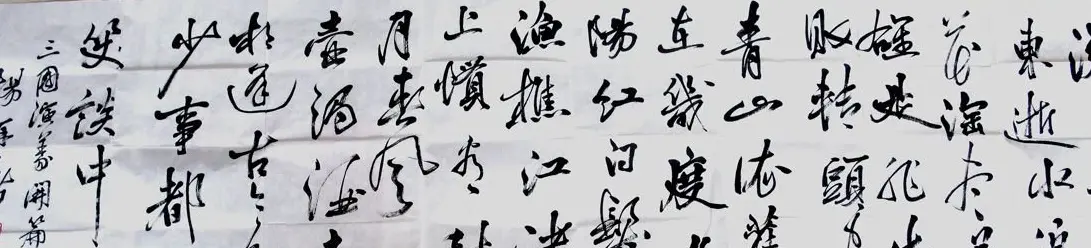 東逝水
花淘盡
雄是非
敗轉頭
青山依舊
在幾度
陽紅白髮
漁樵江渚
上慣看
月春風
壺濁酒
相逢古今
少事都
笑談中
三國演義開篇